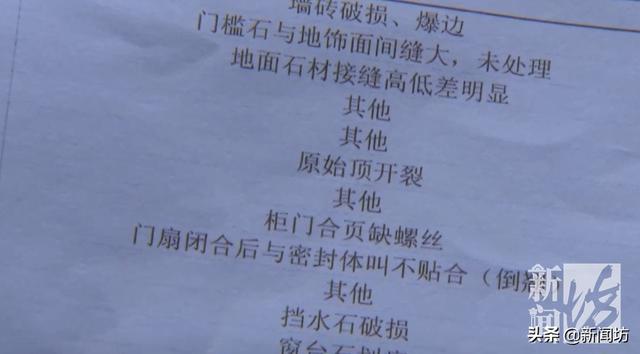 墙砖破损、爆边
门槛石与地饰面间缝大，未处理
地面石材接缝高低差明显
其他
其他
原始顶开裂
其他
柜门合页缺螺丝
门扇闭合后与密封体叫不贴合（倒
其他
挡水石破损
窗台石划
新闻坊
头条 @新闻坊